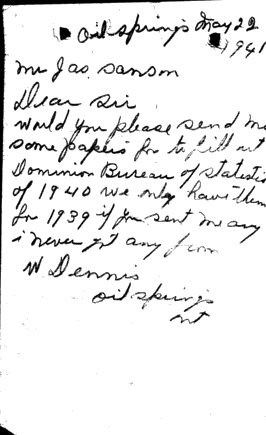 Oil springs May 22
1941
Mr Jas. Sanson
Dear Sir
would you please send me
some papers for to fill out
Dominion Bureau of statistic
of 1940 we only have them
for 1939 if you sent me any
i never got any from
W Dennis
oil springs
ont